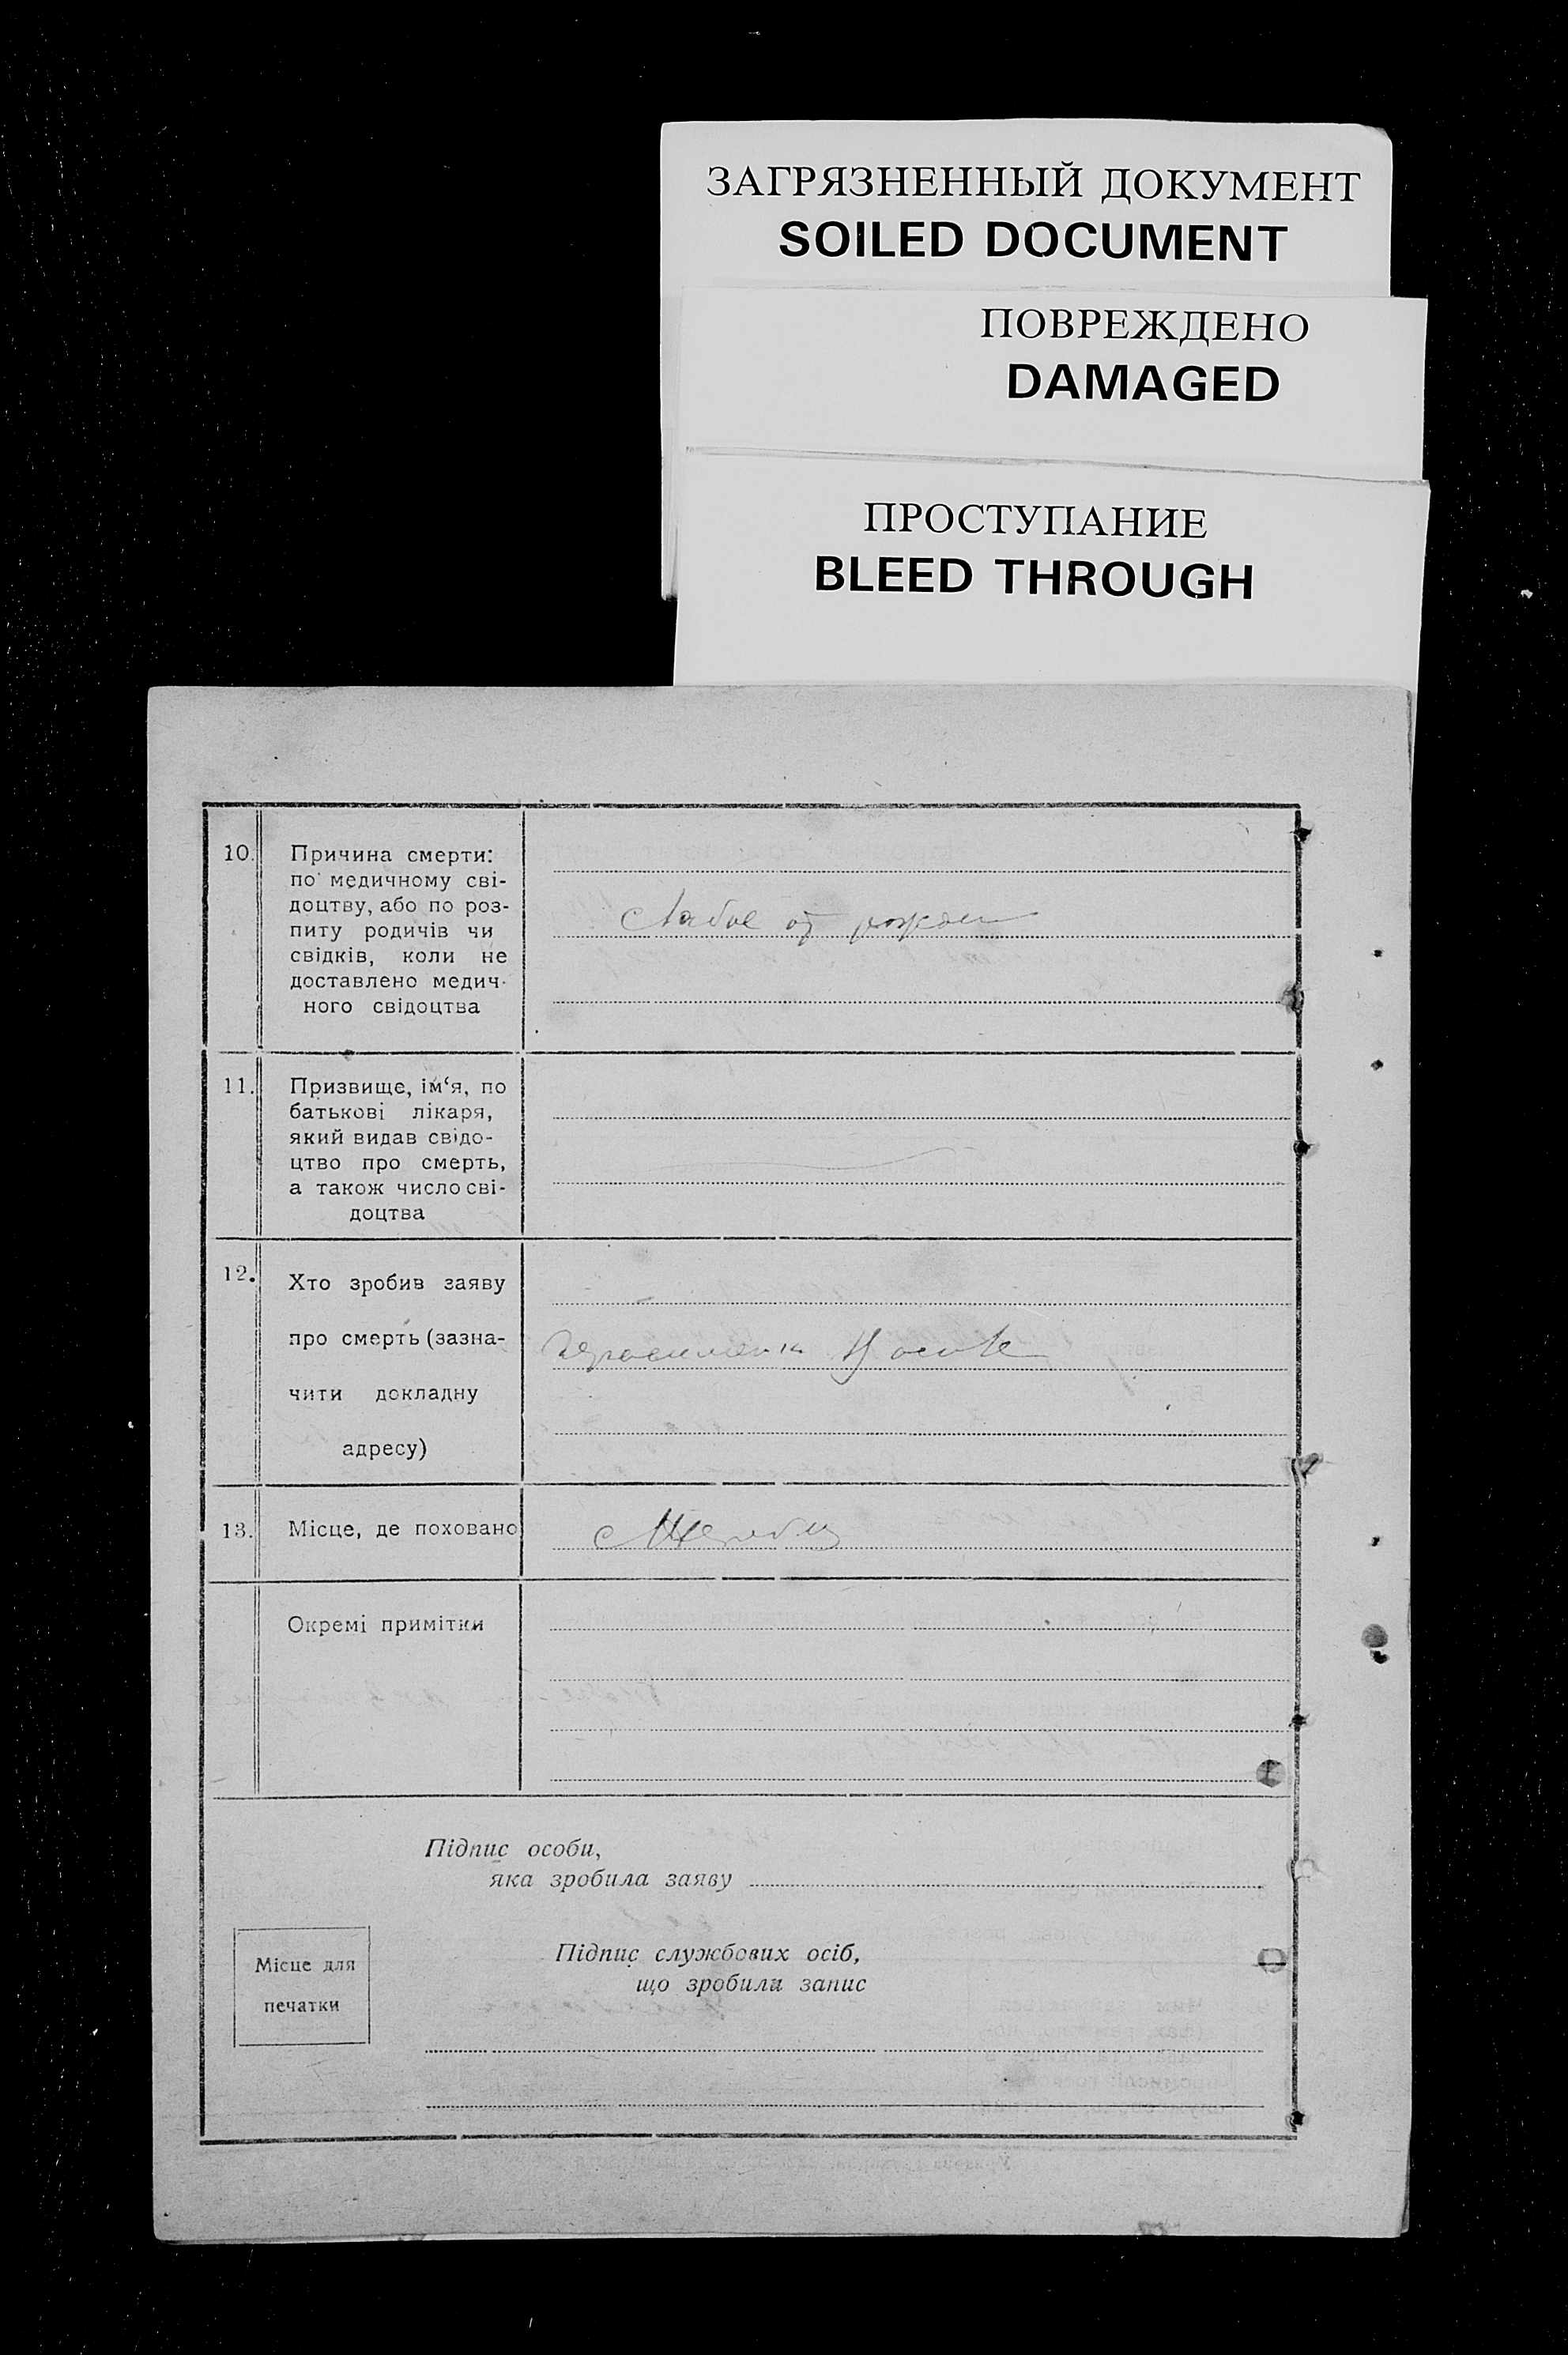 ЗАГРЯЗНЕННЫЙ ДОКУМЕНТ
SOILED DOCUMENT
ПОВРЕЖДЕНО
DAMAGED
ПРОСТУПАНИЕ
BLEED THROUGH
10.
Причина смерти:
по медичному сві-
доцтву, або по роз-
питу родичів чи
свідків, коли не
доставлено медич-
ного свідоцтва
от
11.
Призвище, ім‘я, по
батькові лікаря,
який видав свідо-
цтво про смерть,
а також число сві-
доцтва
12.
Хто зробив заяву
про смерть (зазна-
чити докладну
адресу)
13.
Місце, де поховано
с
Окремі примітки
Підпис особи,
яка зробила заяву
Місце для
печатки
Підпис службових осіб,
що зробили запис